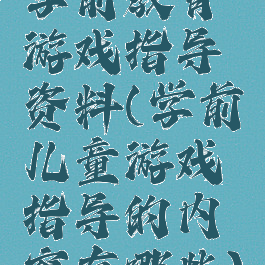 学前教育
游戏指导
资料(学前
儿童游戏
指导的内
容有哪些)